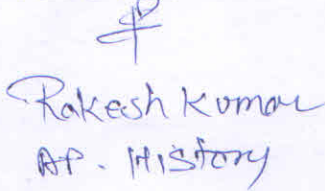 Rakesh Kumar
AP. History